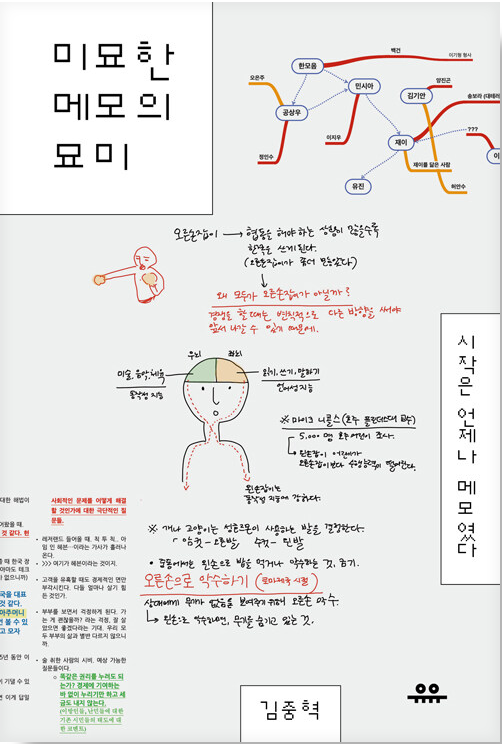 미묘한
메모의
묘미
백건
이기원 형사
한모음
오은주
민시아
양진곤
김기안
송보라 (대테러
공상우
???
이지우
재이
이
정인수
제이를 닮은 사람
유진
허안수
오른손잡이 → 협동을 해야 하는 상황이 많을수록
한쪽을 쓰게 된다.
(오른손잡이가 좀더 모든일다)
왜 모두가 오른손잡이가 아닐까?
경쟁을 할 때는 변칙적으로 다른 방향을 써야
앞서 나갈 수 있기 때문에.
우뇌
좌뇌
미술, 음악, 체육
동작성 지능
읽기, 쓰기, 말하기
언어성 지능
※ 마이크 니콜스 (호주 플린더스대 교수)
5,000명 호주 어린이 조사.
왼손잡이 어린이가
오른손잡이보다 수업능력이 떨어진다.
왼손잡이는
동작성 지능에 강하다.
시작은 언제나 메모였다
※ 개나 고양이는 성호르몬이 사용하는 발을 결정한다.
암컷 - 오른발 수컷 - 왼발
• 중동에서는 왼손으로 밥을 먹거나 악수하는 것, 금기.
오른손으로 악수하기 (로마제국 시절)
상대에게 무기가 없음을 보여주기 위해 오른손 악수.
↳ 왼손으로 악수하면, 무기를 숨기고 있는 것.
대한 해법이
어왔을 때.
것 같다. 현
때 한국 장
아마도 테크
가 없으니까)
국을 대표
것 같다.
아주머니
번 볼 수 있
고 모자
5년 동안 이
기 댈 수 있
면 이게 답일
사회적인 문제를 어떻게 해결
할 것인가에 대한 극단적인 질
문들.
• 레저랜드 들어올 때, 칙 투 칙, 아
임 인 해븐…이라는 가사가 흘러나
온다.
• >>> 여기가 헤븐이라는 것이지.
• 고객을 유혹할 때도 경제적인 면만
부각시킨다. 다들 얼마나 살기 힘
든 것인가.
• 부부를 보면서 걱정하게 된다. 가
는 게 괜찮을까? 라는 걱정, 잘 살
았으면 좋겠다라는 기대. 우리 모
두 부부의 삶과 별반 다르지 않으니
까.
• 술 취한 사람의 시비. 예상 가능한
질문들이다.
똑같은 권리를 누려도 되
는가? 경제에 기여하는
바 없이 누리기만 하고 세
금도 내지 않는다.
(이방인들, 난민들에 대한
기존 시민들의 태도에 대
한 코멘트)
김중혁
유유